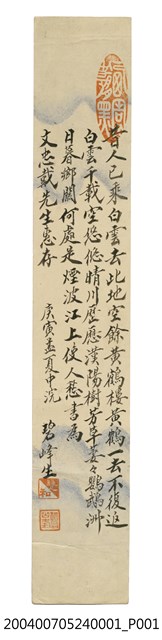 昔人已乘白雲去此地空餘黃鶴樓黃鶴一去不復返
白雲千載空悠悠晴川歷歷漢陽樹芳草萋々鸚鵡洲
日暮鄉關何處是煙波江上使人愁書為
文忠載先生惠存
庚寅孟夏中浣 碧峰生
200400705240001_P001